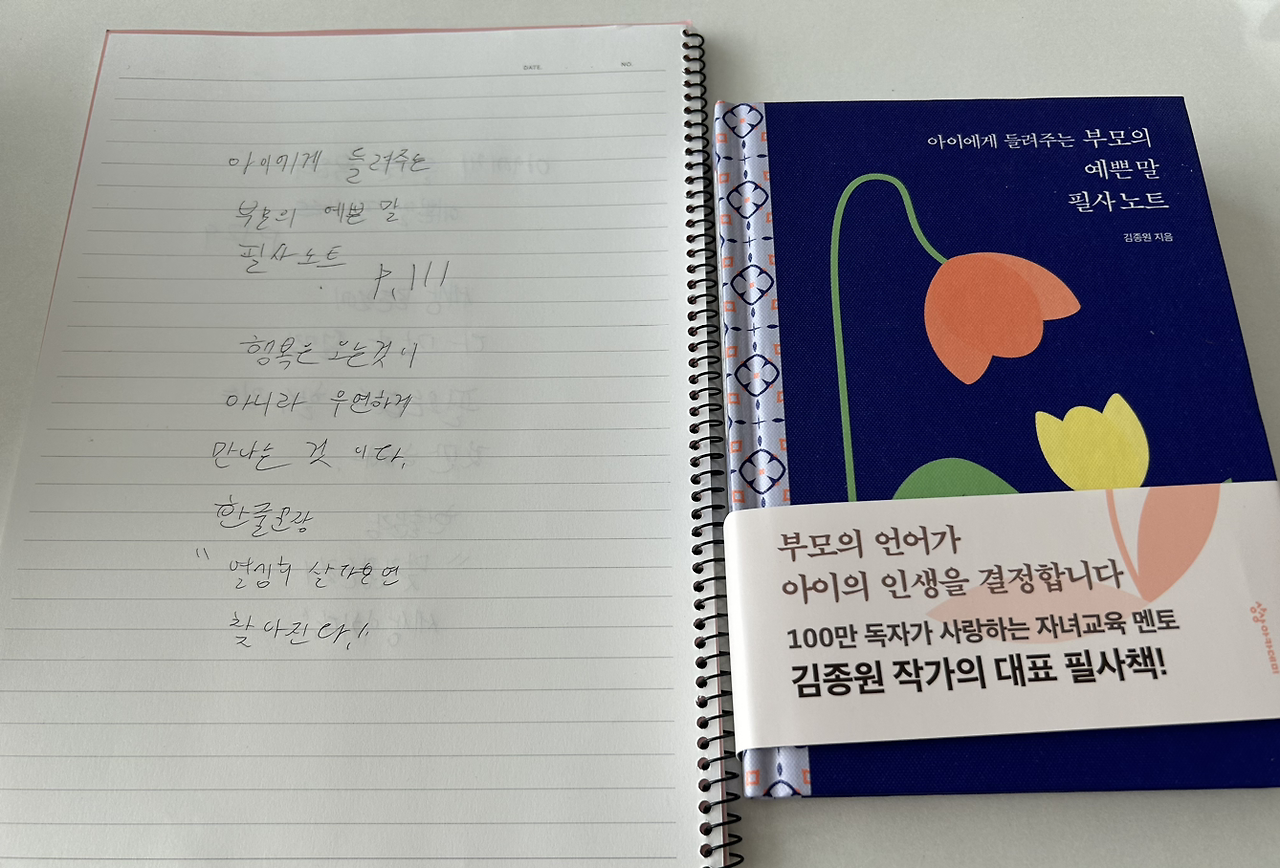 DATE. NO.
아이에게 들려주는
부모의 예쁜 말
필사노트 p.111
행복은 오는것이
아니라 우연하게
만나는 것 이다.
한글모장
"열심히 살자보면
찾아진다!"
아이에게 들려주는 부모의
예쁜 말
필사 노트
김종원 지음
부모의 언어가
아이의 인생을 결정합니다
100만 독자가 사랑하는 자녀교육 멘토
김종원 작가의 대표 필사책!
상상아카데미